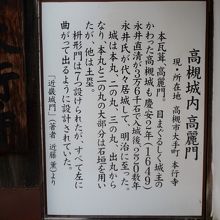 高槻城内 高麗門
現・所在地 高槻市大手町 本行寺
本瓦葺、高麗門。目まぐるしく城主の
かわった高槻城も慶安2年(1649)
永井直清が3万6千石で入城後、250数年
永井氏が代々居城して、明治に至った。
本丸、二の丸、三の丸、出丸から
なり、本丸と二の丸の大部分は石垣を用い
たが、他は土塁。
枡形門は7つ設けられたが、すべて左に
曲がって出るように設計されていた。
「近畿城門」(著者 近藤 薫)より